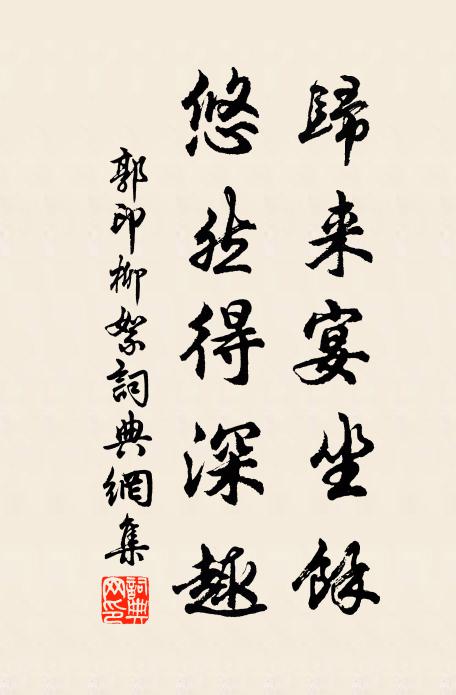 歸来宴坐餘
悠然得深趣
郭印柳絮詞典網集
詞典网印